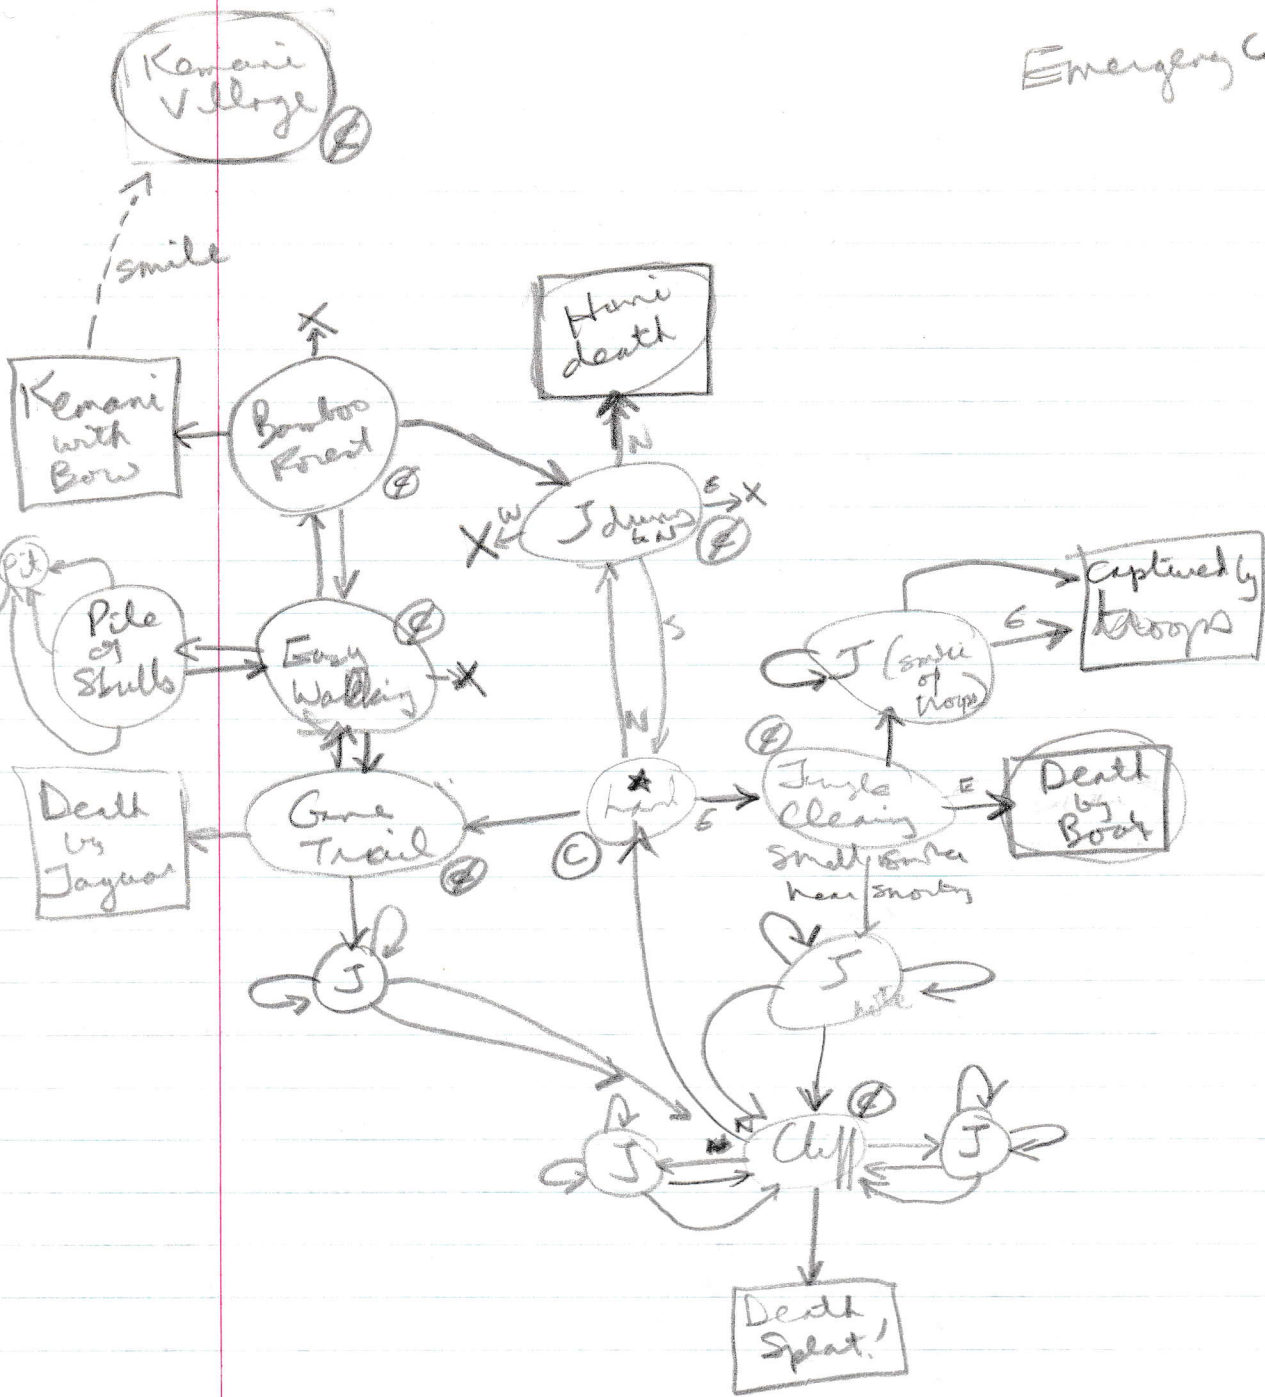 Emergency C
Kemani
Village
¢
smile
Homi
death
X
Kemani
with
Bow
Bamboo
Forest
¢
N
W
X
E
X
J drums
to N
¢
Pit
Pile
of
Skulls
Easy
Walking
¢
X
S
N
J (smell
of
troops)
E
Captured by
troops
Death
by
Jaguar
Game
Trail
¢
C
land
E
¢
Jungle
Clearing
E
Death
by
Boar
Smell smoke
hear snorting
J
J
N
J
Cliff
¢
J
Death
Splat!